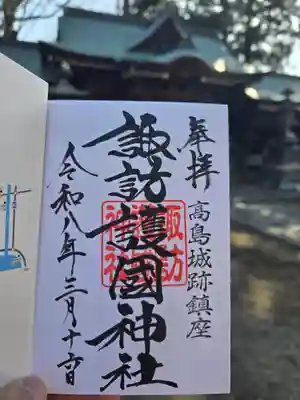 奉拝
高島城跡鎮座
諏訪護國神社
諏訪護國神社
令和八年三月十六日